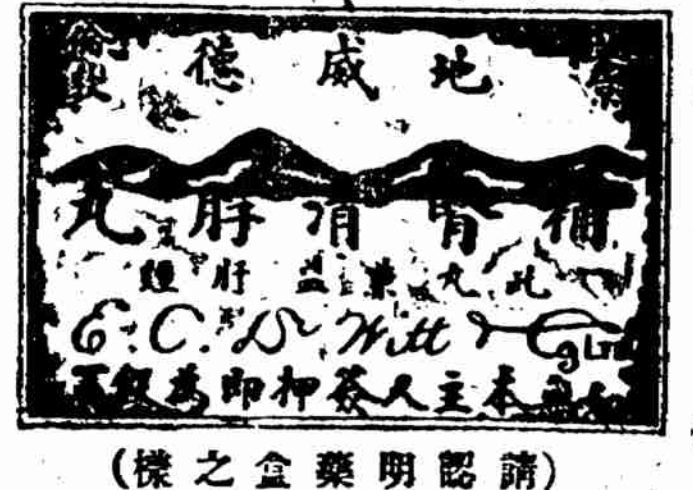 地威德
倫敦
補腎清肝丸
此丸兼益肝經
E. C. De Witt & Co Ltd
無本主人簽押即為假
(請認明藥盒之樣)